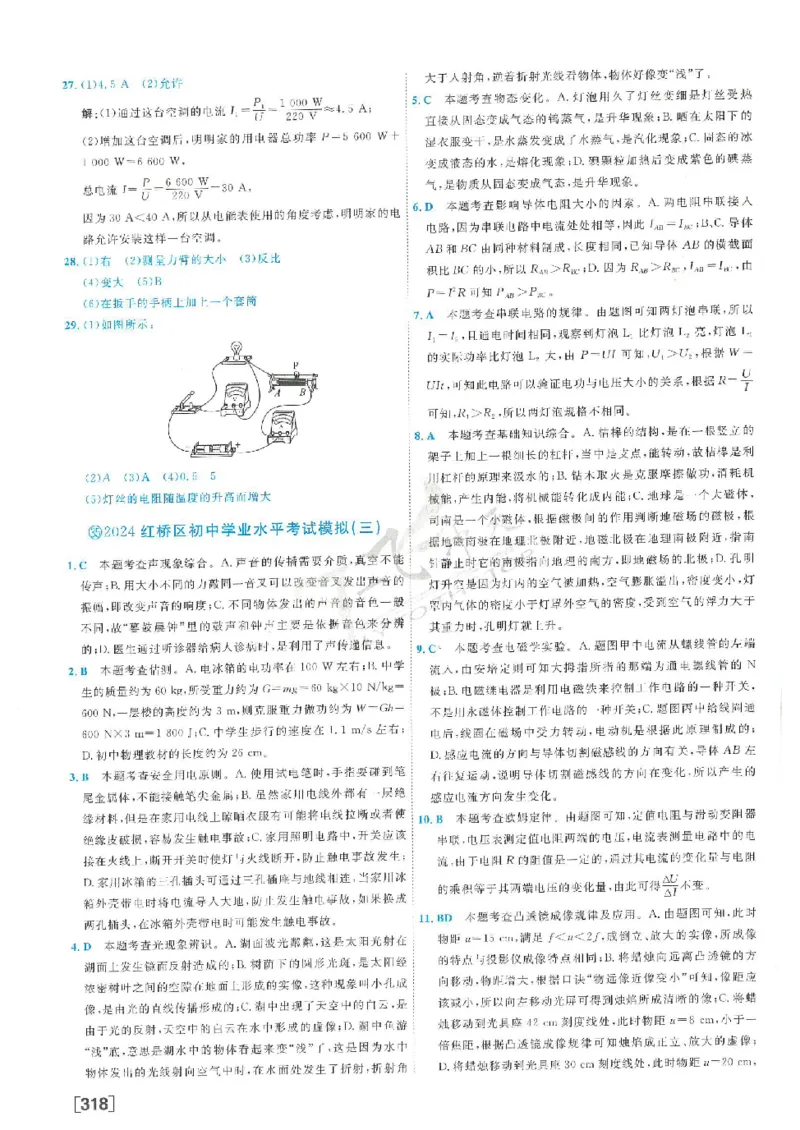 27. (1)4.5 A　(2)允许
解:(1)通过这台空调的电流 I₁=P₁/U=1 000 W/220 V≈4.5 A;
(2)增加这台空调后,明明家的用电器总功率 P=5 600 W+
1 000 W=6 600 W,
总电流 I=P/U=6 600 W/220 V=30 A,
因为 30 A<40 A,所以从电能表使用的角度考虑,明明家的电
路允许安装这样一台空调。
28. (1)右　(2)测量力臂的大小　(3)反比
(4)变大　(5)B
(6)在扳手的手柄上加上一个套筒
29. (1)如图所示:
P
A B
(2)A　(3)A　(4)0.5　5
(5)灯丝的电阻随温度的升高而增大
㉟2024 红桥区初中学业水平考试模拟(三)
1. C　本题考查声现象综合。A.声音的传播需要介质,真空不能
传声;B.用大小不同的力敲同一音叉可以改变音叉发出声音的
振幅,即改变声音的响度;C.不同物体发出的声音的音色一般
不同,故“暮鼓晨钟”里的鼓声和钟声主要是依据音色来分辨
的;D.医生通过听诊器给病人诊病时,是利用了声传递信息。
2. B　本题考查估测。A.电冰箱的电功率在 100 W 左右;B.中学
生的质量约为 60 kg,所受重力约为 G=mg=60 kg×10 N/kg=
600 N,一层楼的高度约为 3 m,则克服重力做功约为 W=Gh=
600 N×3 m=1 800 J;C.中学生步行的速度在 1.1 m/s 左右;
D.初中物理教材的长度约为 26 cm。
3. B　本题考查安全用电原则。A.使用试电笔时,手指要碰到笔
尾金属体,不能接触笔尖金属;B.虽然家用电线外都有一层绝
缘材料,但是在家用电线上晾晒衣服有可能将电线拉断或者使
绝缘皮破损,容易发生触电事故;C.家用照明电路中,开关应该
接在火线上,断开开关时使灯与火线断开,防止触电事故发生;
D.家用冰箱的三孔插头可通过三孔插座与地线相连,当家用冰
箱外壳带电时将电流导入大地,防止发生触电事故,如果换成
两孔插头,在冰箱外壳带电时可能发生触电事故。
4. D　本题考查光现象辨识。A.湖面波光粼粼,这是太阳光射在
湖面上发生镜面反射造成的;B.树荫下的圆形光斑,是太阳经
浓密树叶之间的空隙在地面上形成的实像,这种现象叫小孔成
像,是由光的直线传播形成的;C.湖中出现了天空中的白云,是
由于光的反射,天空中的白云在水中形成的虚像;D.湖中鱼游
“浅”底,意思是湖水中的物体看起来变“浅”了,这是因为水中
物体发出的光线射向空气中时,在水面处发生了折射,折射角
大于入射角,逆着折射光线看物体,物体好像变“浅”了。
5. C　本题考查物态变化。A.灯泡用久了灯丝变细是灯丝受热
直接从固态变成气态的钨蒸气,是升华现象;B.晒在太阳下的
湿衣服变干,是水蒸发变成了水蒸气,是汽化现象;C.固态的冰
变成液态的水,是熔化现象;D.碘颗粒加热后变成紫色的碘蒸
气,是物质从固态变成气态,是升华现象。
6. D　本题考查影响导体电阻大小的因素。A.两电阻串联接入
电路,因为串联电路中电流处处相等,因此 I_AB=I_BC;B、C.导体
AB 和 BC 由同种材料制成,长度相同,已知导体 AB 的横截面
积比 BC 的小,所以 R_AB>R_BC;D.因为 R_AB>R_BC,I_AB=I_BC,由
P=I²R 可知 P_AB>P_BC。
7. A　本题考查串联电路的规律。由题图可知两灯泡串联,所以
I₁=I₂,且通电时间相同,观察到灯泡 L₁ 比灯泡 L₂ 亮,灯泡 L₁
的实际功率比灯泡 L₂ 大,由 P=UI 可知,U₁>U₂,根据 W=
UIt,可知此电路可以验证电功与电压大小的关系,根据 R=U/I
可知,R₁>R₂,所以两灯泡规格不相同。
8. A　本题考查基础知识综合。A.桔槔的结构,是在一根竖立的
架子上加上一根细长的杠杆,当中是支点,能转动,故桔槔是利
用杠杆的原理来汲水的;B.钻木取火是克服摩擦做功,消耗机
械能,产生内能,将机械能转化成内能;C.地球是一个大磁体,
司南是一个小磁体,根据磁极间的作用判断地磁场的磁极,根
据地磁南极在地理北极附近,地磁北极在地理南极附近,指南
针静止时它的南极指向地理的南方,即地磁场的北极;D.孔明
灯升空是因为灯内的空气被加热,空气膨胀溢出,密度变小,灯
罩内气体的密度小于灯罩外空气的密度,受到空气的浮力大于
其重力时,孔明灯就上升。
9. C　本题考查电磁学实验。A.题图甲中电流从螺线管的左端
流入,由安培定则可知大拇指所指的那端为通电螺线管的 N
极;B.电磁继电器是利用电磁铁来控制工作电路的一种开关,
不是用永磁体控制工作电路的一种开关;C.题图丙中给线圈通
电后,线圈在磁场中受力转动,电动机是根据此原理制成的;
D.感应电流的方向与导体切割磁感线的方向有关,导体 AB 左
右往复运动,说明导体切割磁感线的方向在变化,所以产生的
感应电流方向发生变化。
10. B　本题考查欧姆定律。由题图可知,定值电阻与滑动变阻器
串联,电压表测定值电阻两端的电压,电流表测量电路中的电
流,由于电阻 R 的阻值是一定的,通过其电流的变化量与电阻
的乘积等于其两端电压的变化量,由此可得ΔU/ΔI不变。
11. BD　本题考查凸透镜成像规律及应用。A.由题图可知,此时
物距 u=15 cm,满足 f<u<2f,成倒立、放大的实像,所成像
的特点与投影仪成像特点相同;B.将蜡烛向远离凸透镜的方
向移动,物距增大,根据口诀“物远像近像变小”可知,像距应
该减小,所以向左移动光屏可得到烛焰所成清晰的像;C.将蜡
烛移动到光具座 42 cm 刻度线处,此时物距 u=8 cm,小于一
倍焦距,根据凸透镜成像规律可知烛焰成正立、放大的虚像;
D.将蜡烛移动到光具座 30 cm 刻度线处,此时物距 u=20 cm,
[318]